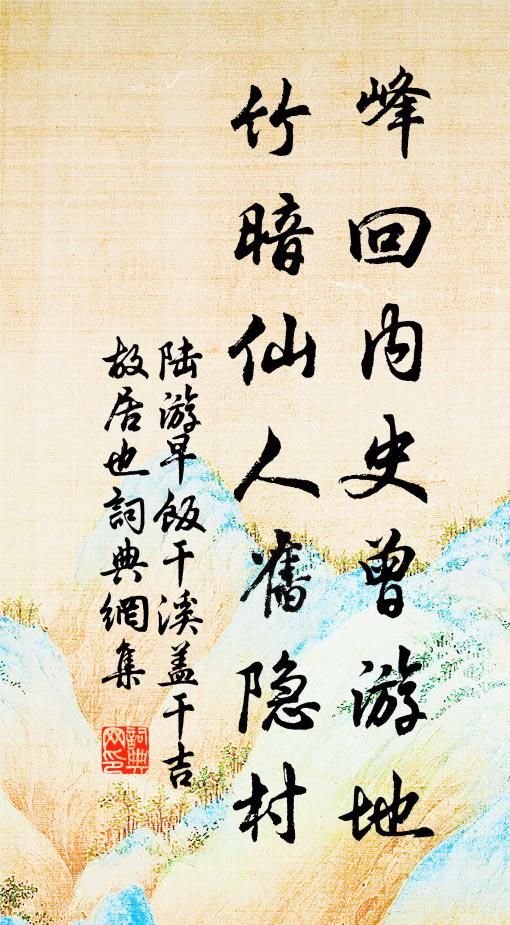 峰回内史曾游地
竹暗仙人舊隐村
陆游早飯干溪盖干吉
故居也詞典網集
詞典
网印